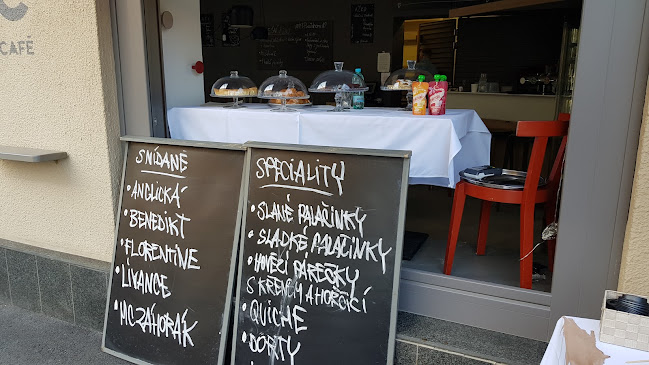 CAFÉ
SNÍDANĚ
• ANGLICKÁ
• BENEDIKT
• FLORENTINE
• LÍVANCE
• MC.ZÁHORÁK
SPECIALITY
• SLANÉ PALAČINKY
• SLADKÉ PALAČINKY
• HOVĚZÍ PÁREČKY
S KŘENEM A HOŘČICÍ
• QUICHE
• DORTY